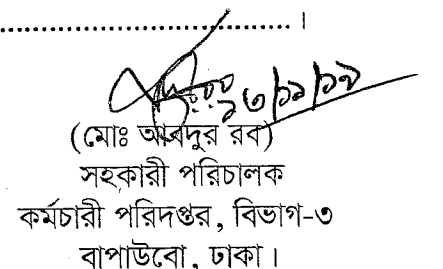 ........................................................ ।
(মোঃ আবদুর রব)
সহকারী পরিচালক
কর্মচারী পরিদপ্তর, বিভাগ-৩
বাপাউবো, ঢাকা।